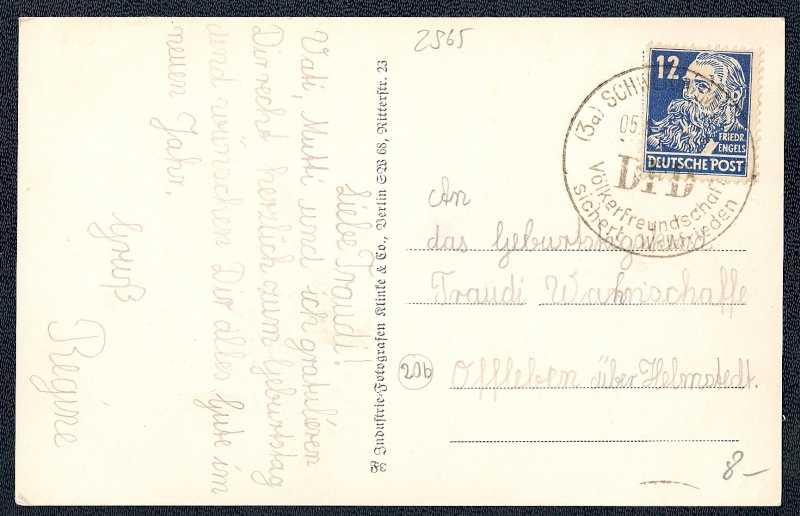 2565
Liebe Traudi!
Vati, Mutti und ich gratulieren
Dir recht herzlich zum Geburtstag
und wünschen Dir alles Gute im
neuen Jahr.
Gruß
Regine
Industrie-Fotografen Klinke & Co., Berlin SW 68, Ritterstr. 23
12
FRIEDR.
ENGELS
DEUTSCHE POST
(3a) SCHW
05.
DFD
Völkerfreundschaft
sichert den Frieden
An
das Geburtstagskind
Traudi Wahnschaffe
20b
Offleben über Helmstedt.
8–